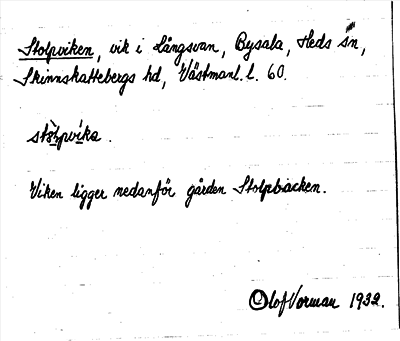 Stolpviken, vik i Långsvan, Bysala, Heds sn,
Skinnskattebergs hd, Västmanl. l. 60.
stòlpvíka.
Viken ligger nedanför gården Stolpbacken.
Olof Vorman 1932.